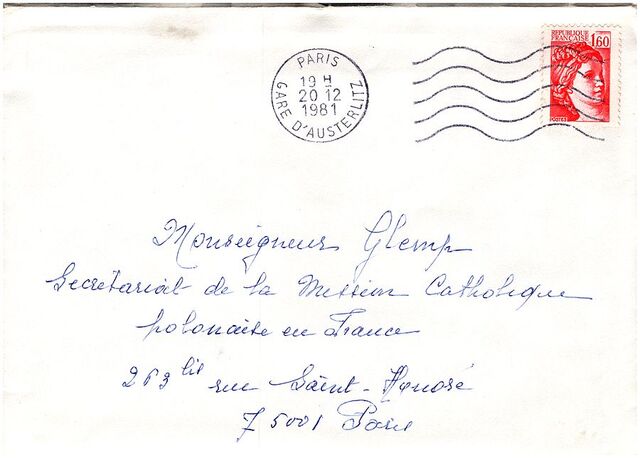 REPUBLIQUE
FRANÇAISE
1,60
POSTES
PARIS
19 H
20 12
1981
GARE D'AUSTERLITZ
Monseigneur Glemp
Secrétariat de la Mission Catholique
polonaise en France
263 bis rue Saint-Honoré
75001 Paris